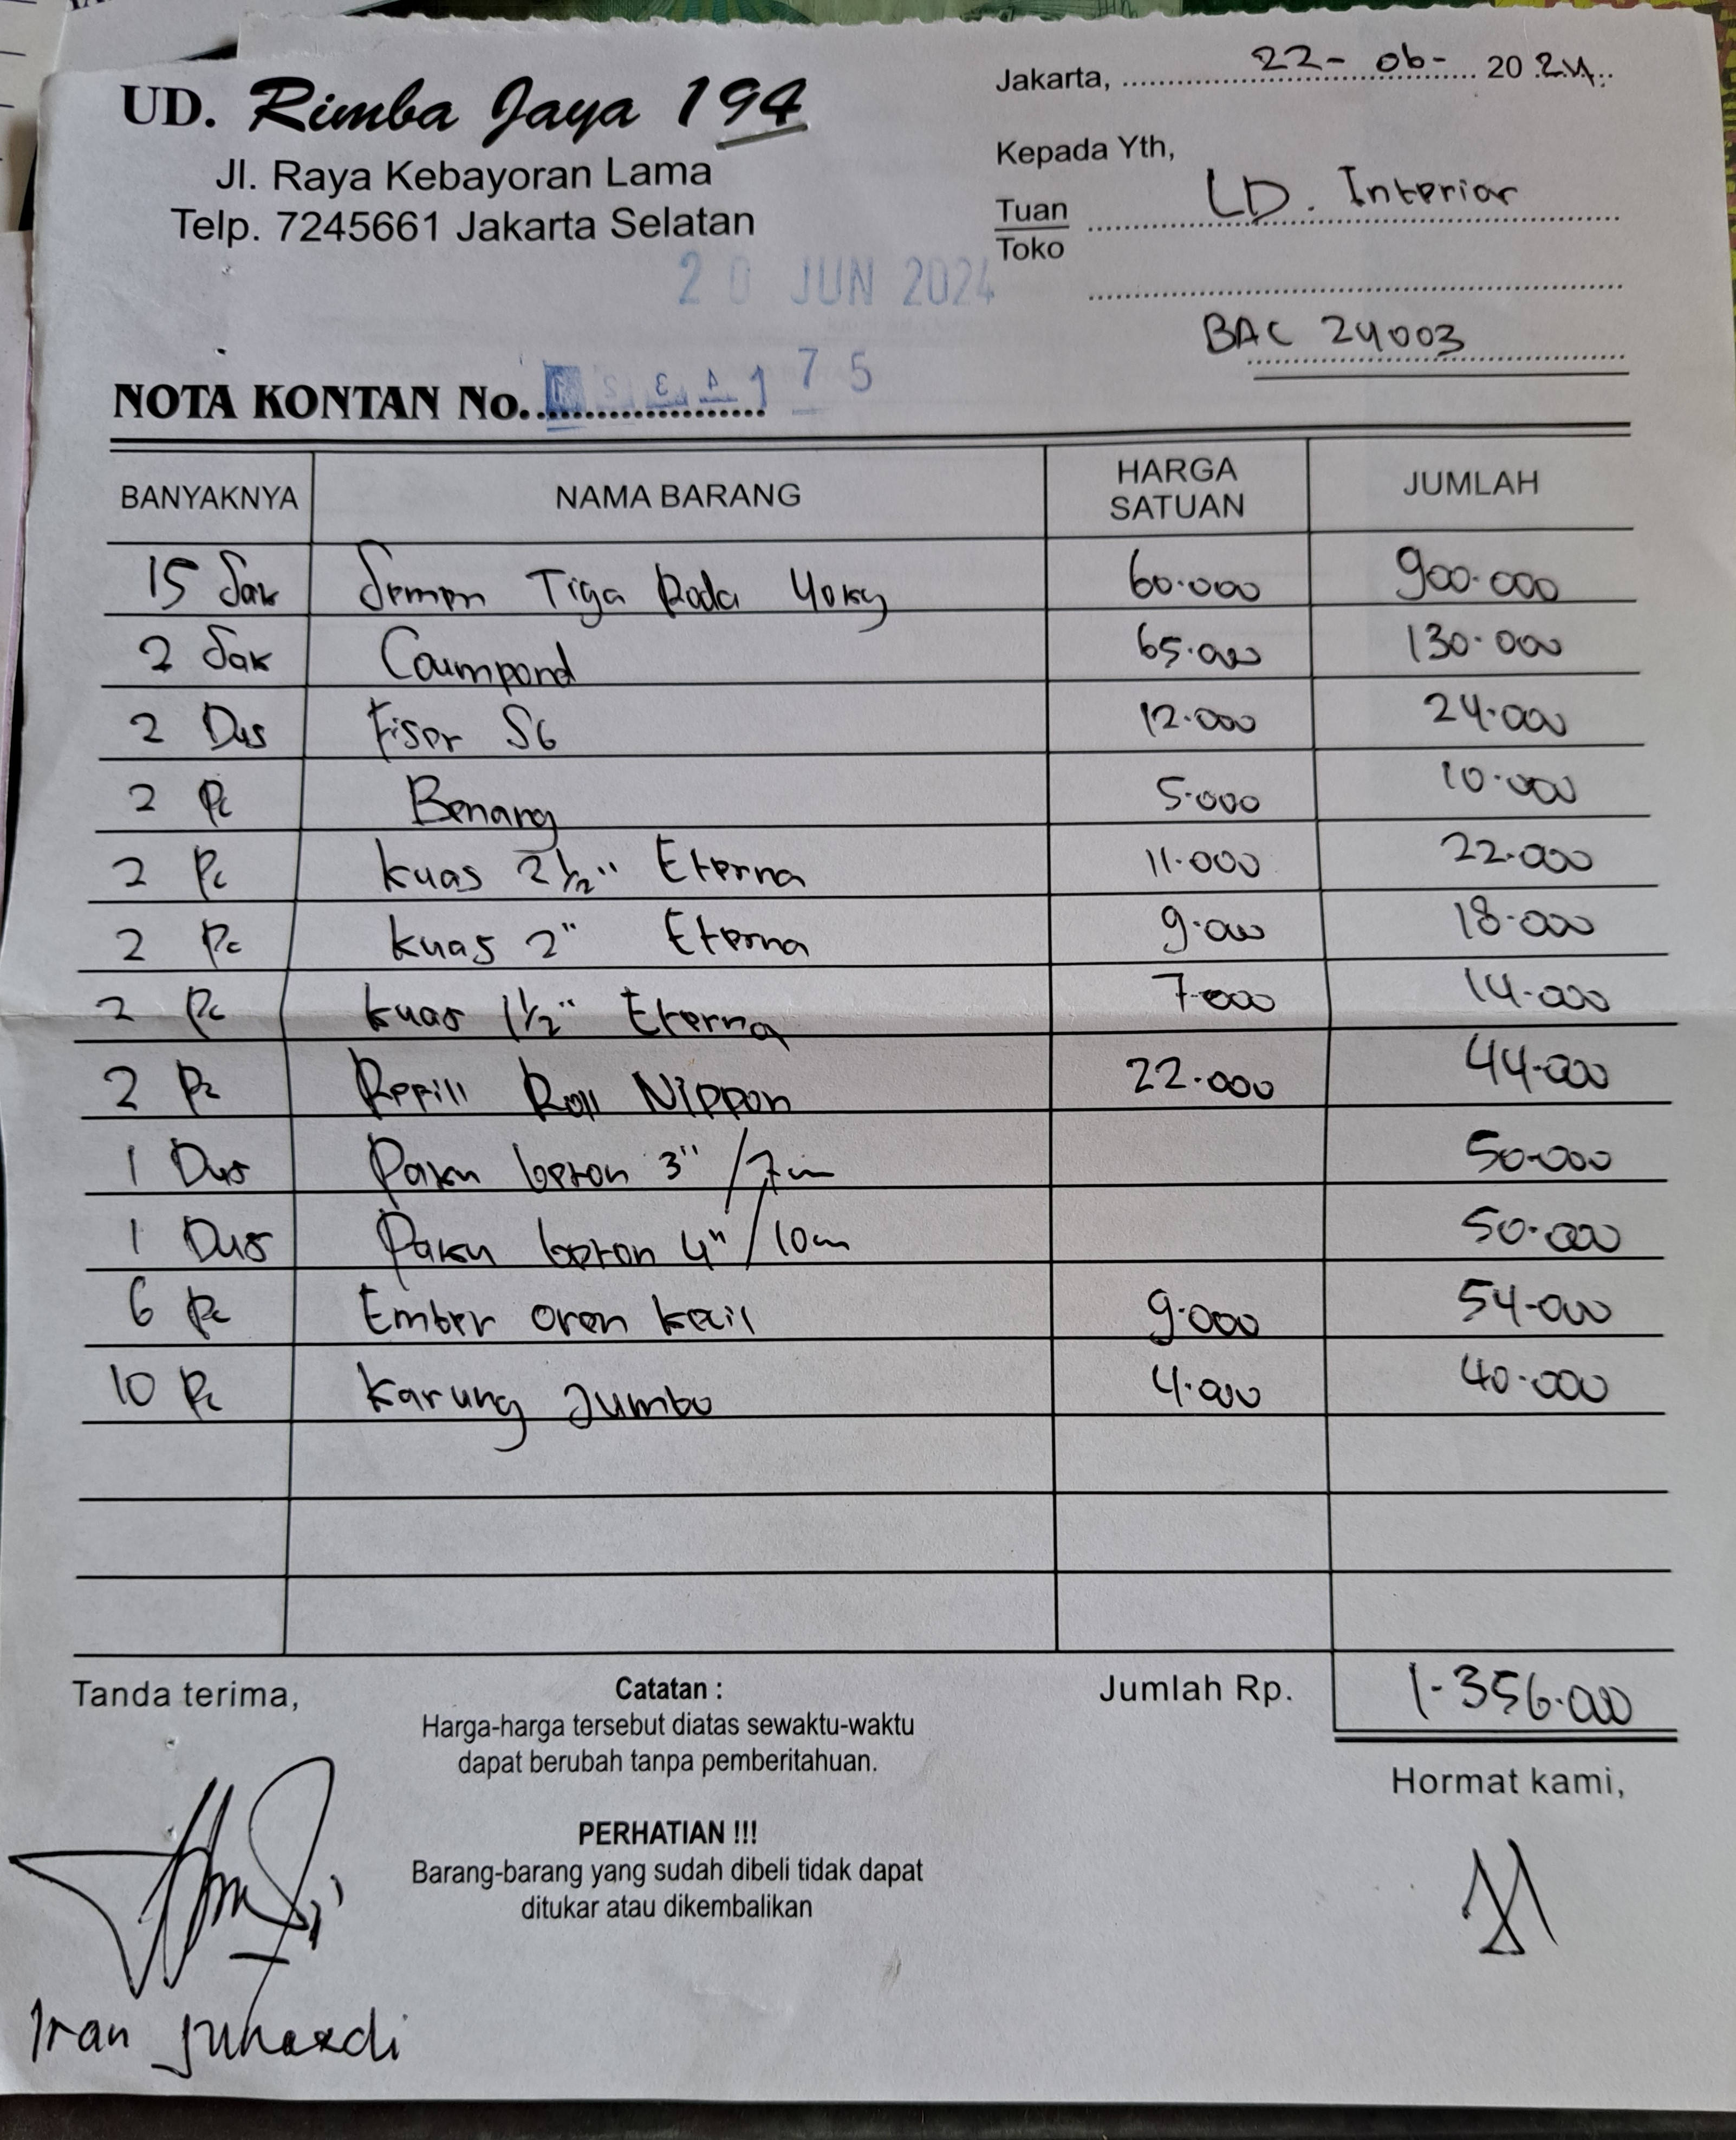 UD. Rimba Jaya 194
Jl. Raya Kebayoran Lama
Telp. 7245661 Jakarta Selatan
Jakarta, 22-06-2024
Kepada Yth,
Tuan LD. Interior
Toko
20 JUN 2024
BAC 24003
NOTA KONTAN No. 175
BANYAKNYA NAMA BARANG HARGA SATUAN JUMLAH
15 Sak Semen Tiga Roda 40kg 60.000 900.000
2 Sak Coumpond 65.000 130.000
2 Dus Fiser S6 12.000 24.000
2 Pc Benang 5.000 10.000
2 Pc Kuas 2½" Eterna 11.000 22.000
2 Pc Kuas 2" Eterna 9.000 18.000
2 Pc Kuas 1½" Eterna 7.000 14.000
2 Pc Refill Roll Nippon 22.000 44.000
1 Dus Paku beton 3"/7cm 50.000
1 Dus Paku beton 4"/10cm 50.000
6 Pc Ember oren kecil 9.000 54.000
10 Pc Karung Jumbo 4.000 40.000
Tanda terima,
Catatan :
Harga-harga tersebut diatas sewaktu-waktu
dapat berubah tanpa pemberitahuan.
Jumlah Rp. 1.356.000
Hormat kami,
PERHATIAN !!!
Barang-barang yang sudah dibeli tidak dapat
ditukar atau dikembalikan
Iran Juhaedi